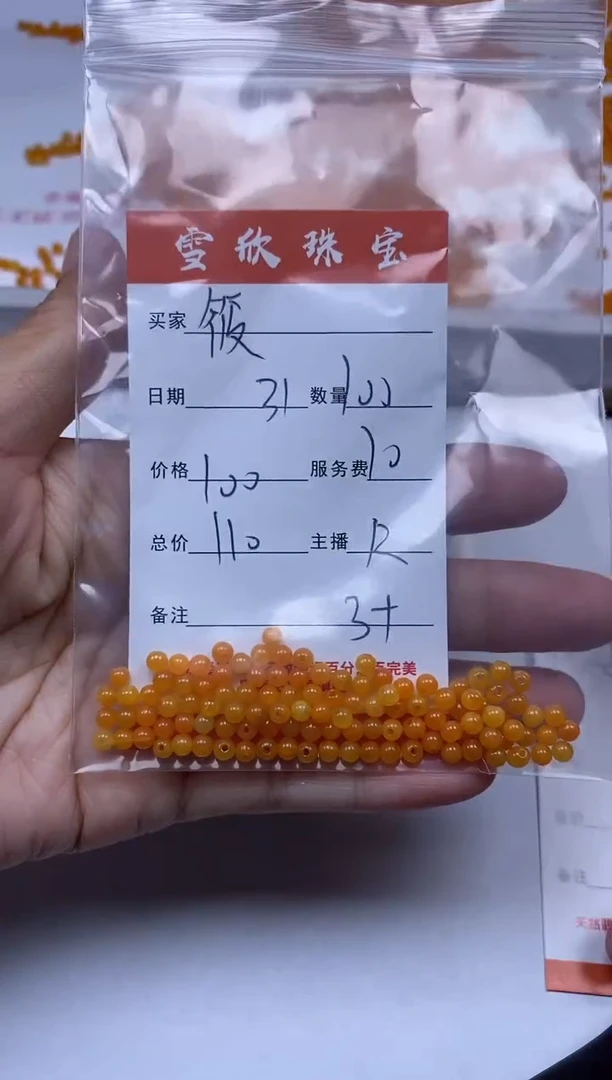 雪欣珠宝
买家 筱
日期 31 数量 100
价格 100 服务费 10
总价 110 主播 R
备注 3+
百分 完美
备注
天然